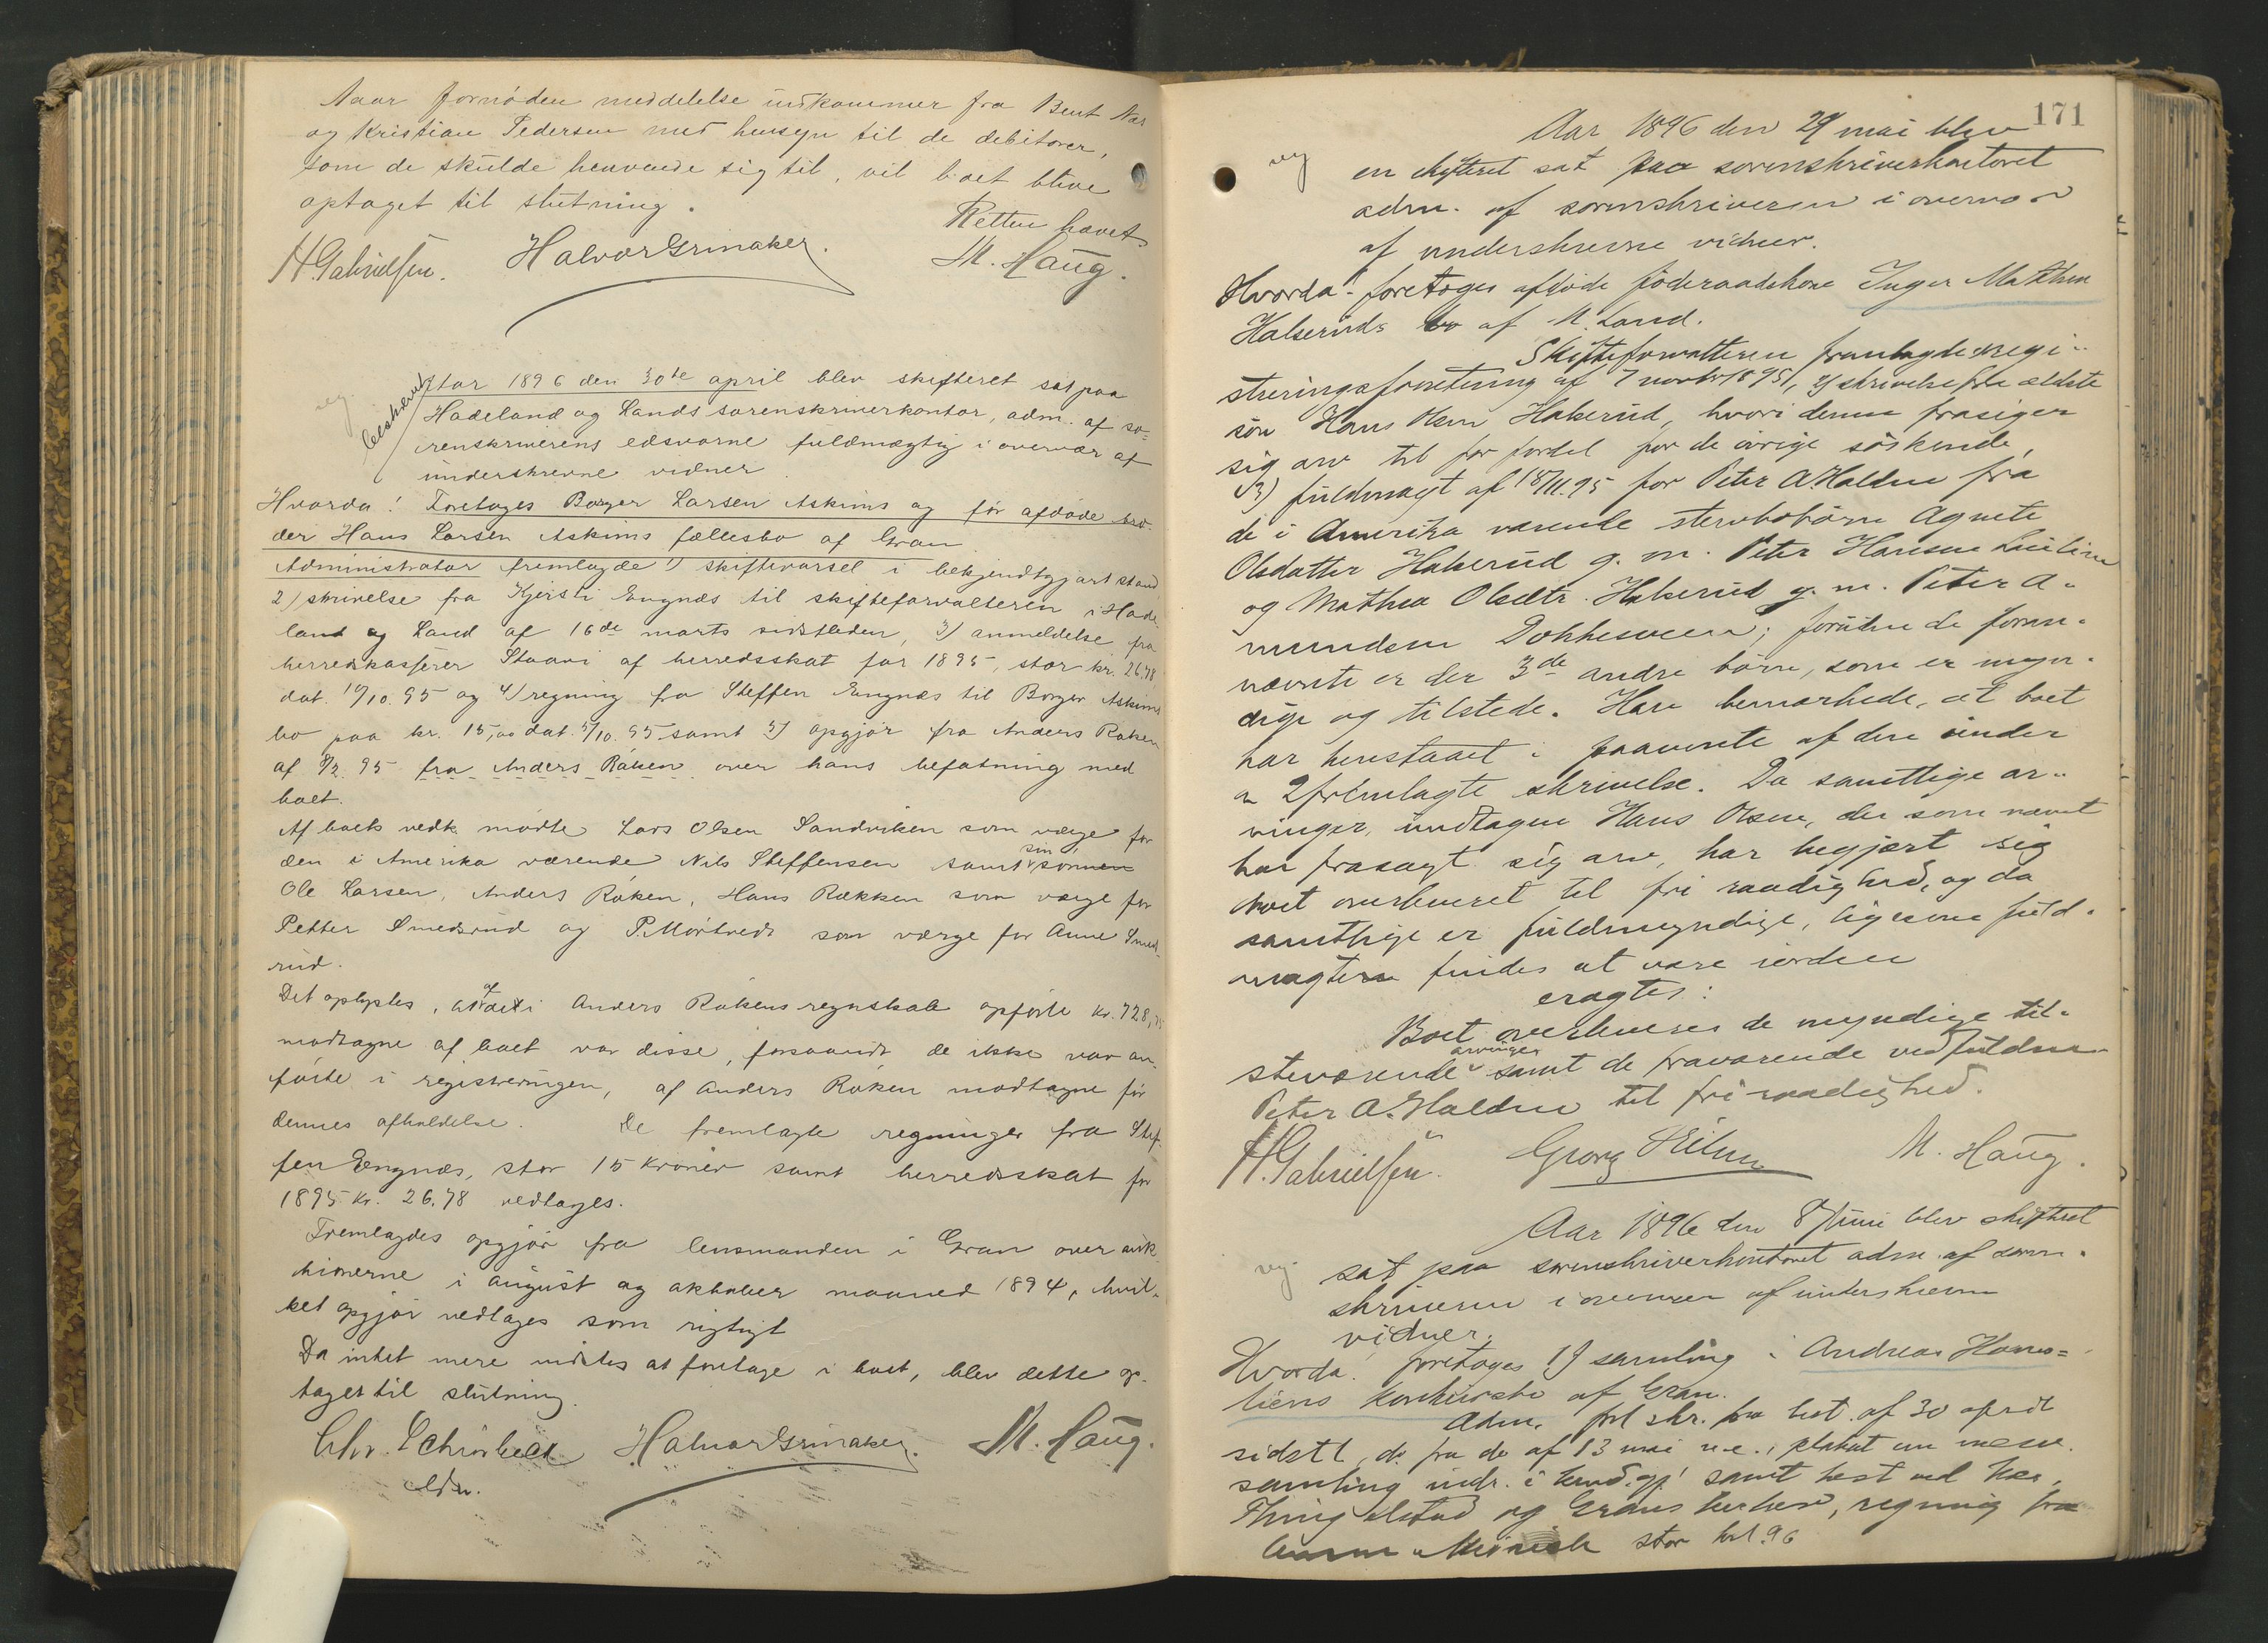 Naar fornöden meddelelse indkommer fra Bent Næs
og Kristian Pedersen med hensyn til de debitorer,
som de skulde henvende sig til, vil boet blive
optaget til slutning.
Retten hævet
H Gabrielsen. Halvor Grinaker. M. Haug.
beskrevet
Aar 1896 den 30te april blev skifteret sat paa
Hadeland og Lands sorenskriverkontor, adm. af so-
renskriverens edsvorne fuldmægtig i overvær af
underskrevne vidner
Hvorda! Foretoges Borger Larsen Askims og før afdøde bro-
der Hans Larsen Askims fællesbo af Gran
Administrator fremlagde 1) skiftevarsel i bekjendtgjort stand
2) skrivelse fra Kjersti Engnæs til skifteforvalteren i Hade-
land og Land af 16de marts sidstleden, 3) anmeldelse fra
herredskasserer Staavi af herredsskat for 1895, stor kr. 26.78
dat. 19/10.95 og 4) regning fra Steffen Engnæs til Borger Askims
bo paa kr. 15,00 dat. 5/10.95 samt 5) opgjør fra Anders Røken
af 9/2 95 fra Anders Røken over hans befatning med
boet.
Af boets vedk. mødte Lars Olsen Sandviken som værge for
den i Amerika værende Nils Steffensen samt sin sönnen
Ole Larsen, Anders Røken, Hans Rækken som værge for
Petter Smedsrud og P. Mörtvedt som værge for Anne Smed-
rud.
Det oplystes, at af de i Anders Røkens regnskab opførte kr. 728,75
modtagne af boet var disse, forsaavidt de ikke var an-
førte i registreringen, af Anders Røken modtagne før
dennes afholdelse. De fremlagte regninger fra Stef-
fen Engnæs, stor 15 kroner samt herredsskat for
1895 kr. 26.78 vedtages.
Fremlagdes opgjør fra lensmanden i Gran over auk-
tionerne i august og oktober maaned 1894, hvil-
ket opgjør vedtages som rigtigt
Da intet mere vidstes at foretage i boet, blev dette op-
taget til slutning.
Chr. Schiørbeck Halvor Grinaker. M. Haug.
edsv.
171
Aar 1896 den 29 mai blev
en skifteret sat paa sorenskriverkontoret
adm. af sorenskriveren i overvær
af underskrevne vidner.
Hvorda! foretoges afdøde föderaadskone Inger Mathea
Halseruds bo af N. Land.
Skifteforvalteren fremlagde regi-
streringsforretning af 7 novbr 1895, 2) skrivelse fra ældste
sön Hans Olsen Halserud, hvori denne frasiger
sig arv til for fordel for de övrige söskende,
3) fuldmagt af 18/11.95 for Peter A. Halden fra
de i Amerika værende stervbobörn Agnete
Olsdatter Halserud g. m. Peter Hansen
og Mathea Olsdtr. Halserud g. m. Peter A-
mundsen Dokkesveen; foruden de foran-
nævnte er der 3de andre börn, som er myn-
dige og tilstede. Han bemærkede, at boet
har henstaaet i paavente af den under
n 2 fremlagte skrivelse. Da samtlige ar-
vinger, undtagen Hans Olsen, der som nævnt
har frasagt sig arv, har begjært sig
boet overleveret til fri raadighed, og da
samtlige er fuldmyndige, ligesom fuld-
magten findes at være iorden
eragtes:
Boet overleveres de myndige til-
steværende arvinger samt de fraværende ved fuldm.
Peter A. Halden til fri raadighed.
H. Gabrielsen. Georg M. Haug.
Aar 1896 den 8 juni blev skifteret
sat paa sorenskriverkontoret adm. af soren-
skriveren i overvær af underskrevne
vidner.
Hvorda! foretoges 1) samling i Andreas Hans-
tiens konkursbo af Gran.
Adm. frl. skr. fra best. af 30 april
sidstl, do. fra do af 13 mai n.e., plakat om
samling indr. i kund.gj. samt læst ved
Thing og Grans kirker, regning fra
stor kr 1.96